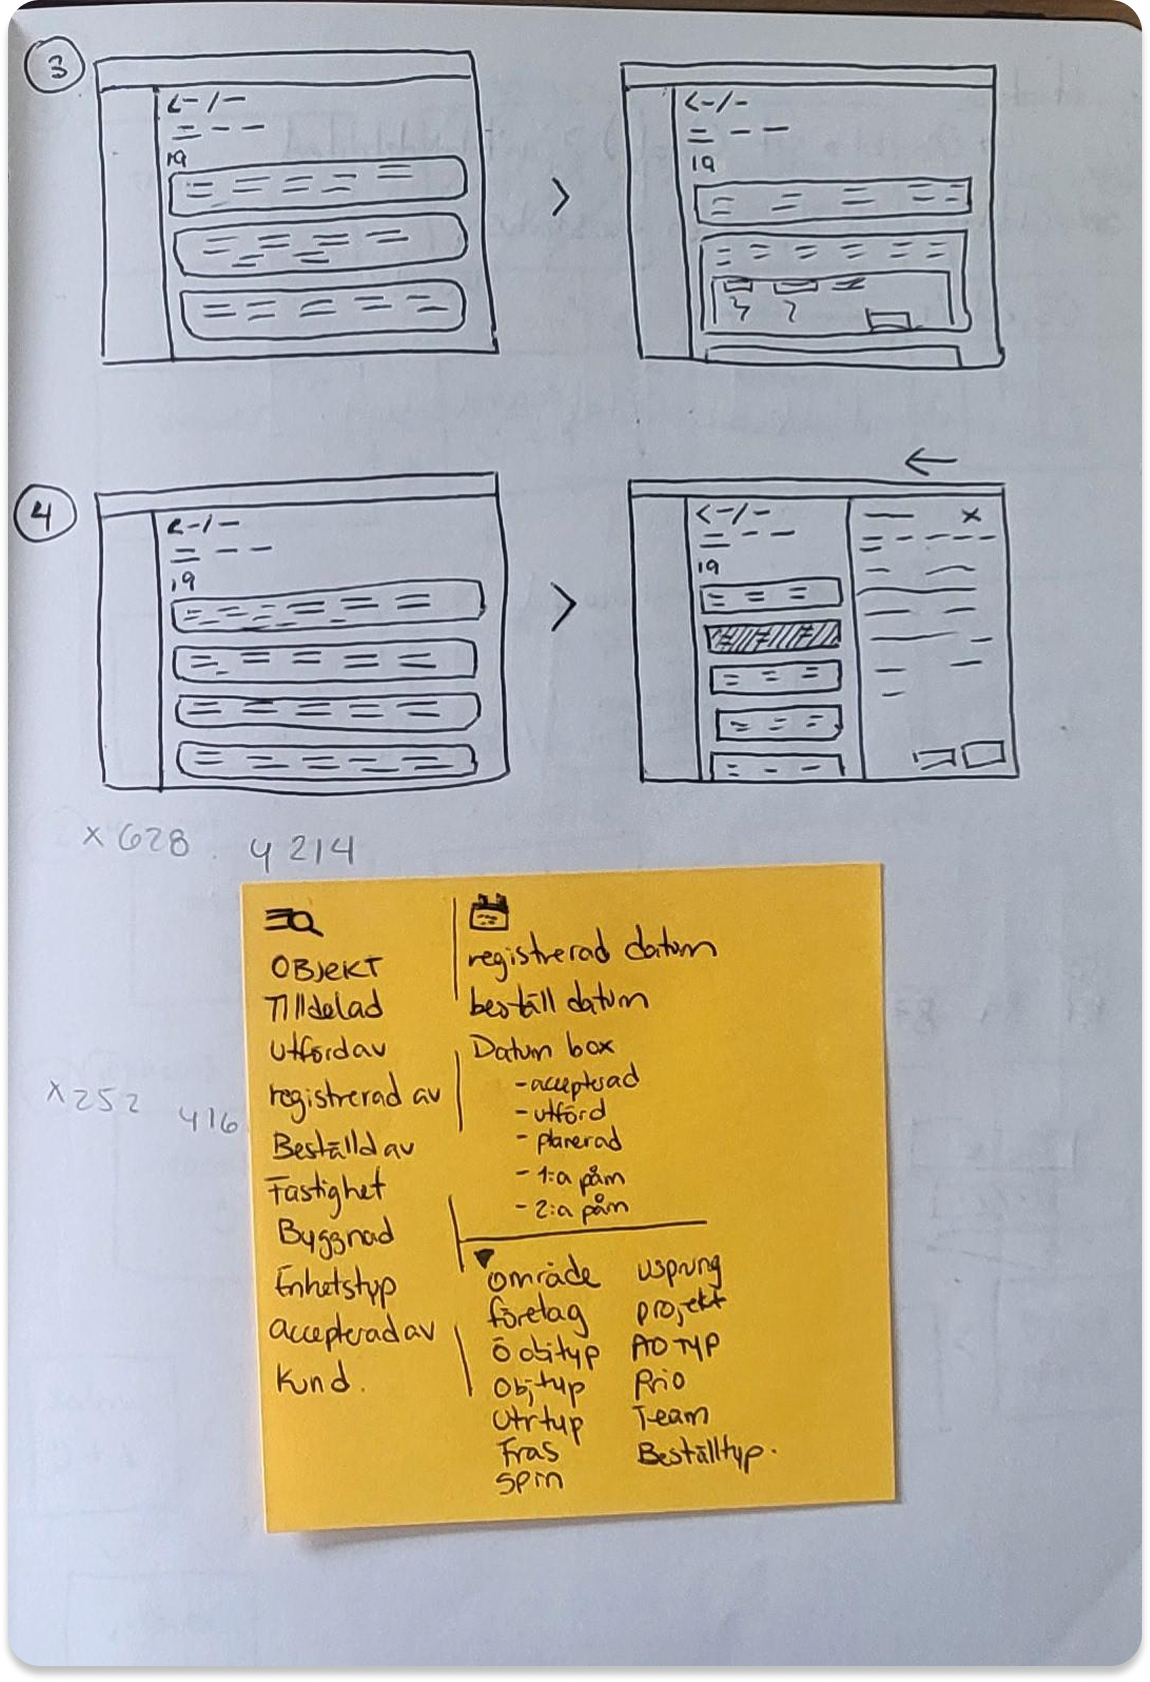 3
<-/-
19
>
<-/-
19
4
<-/-
19
>
<-/-
x
19
x 628 . y 214
OBJEKT
Tilldelad
Utförd av
registrerad av
Beställd av
Fastighet
Byggnad
Enhetstyp
accepterad av
Kund.
registrerad datum
beställ datum
Datum box
- accepterad
- utförd
- planerad
- 1:a påm
- 2:a påm
område
företag
Ö objtyp
Objtyp
Utrtyp
Fras
Spin
usprung
projekt
AO TYP
Prio
Team
Beställtyp.
x 252 416